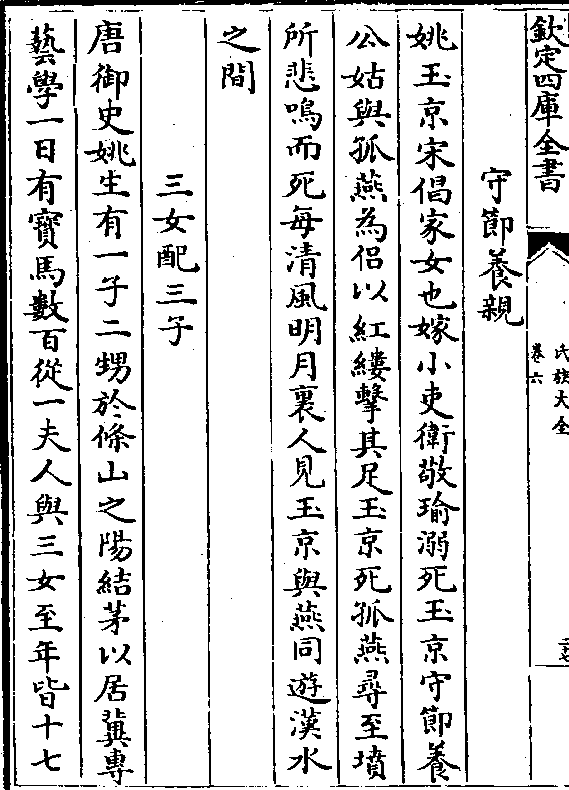 欽定四庫全書
氏族大全
卷六
守節養親
姚玉京宋倡家女也嫁小吏衛敬瑜溺死玉京守節養
公姑與孤燕為侶以紅縷擊其足玉京死孤燕尋至墳
所悲鳴而死每清風明月裏人見玉京與燕同遊漢水
之間
三女配三子
唐御史姚生有一子二甥於條山之陽結茅以居冀專
藝學一日有寳馬數百從一夫人與三女至年皆十七